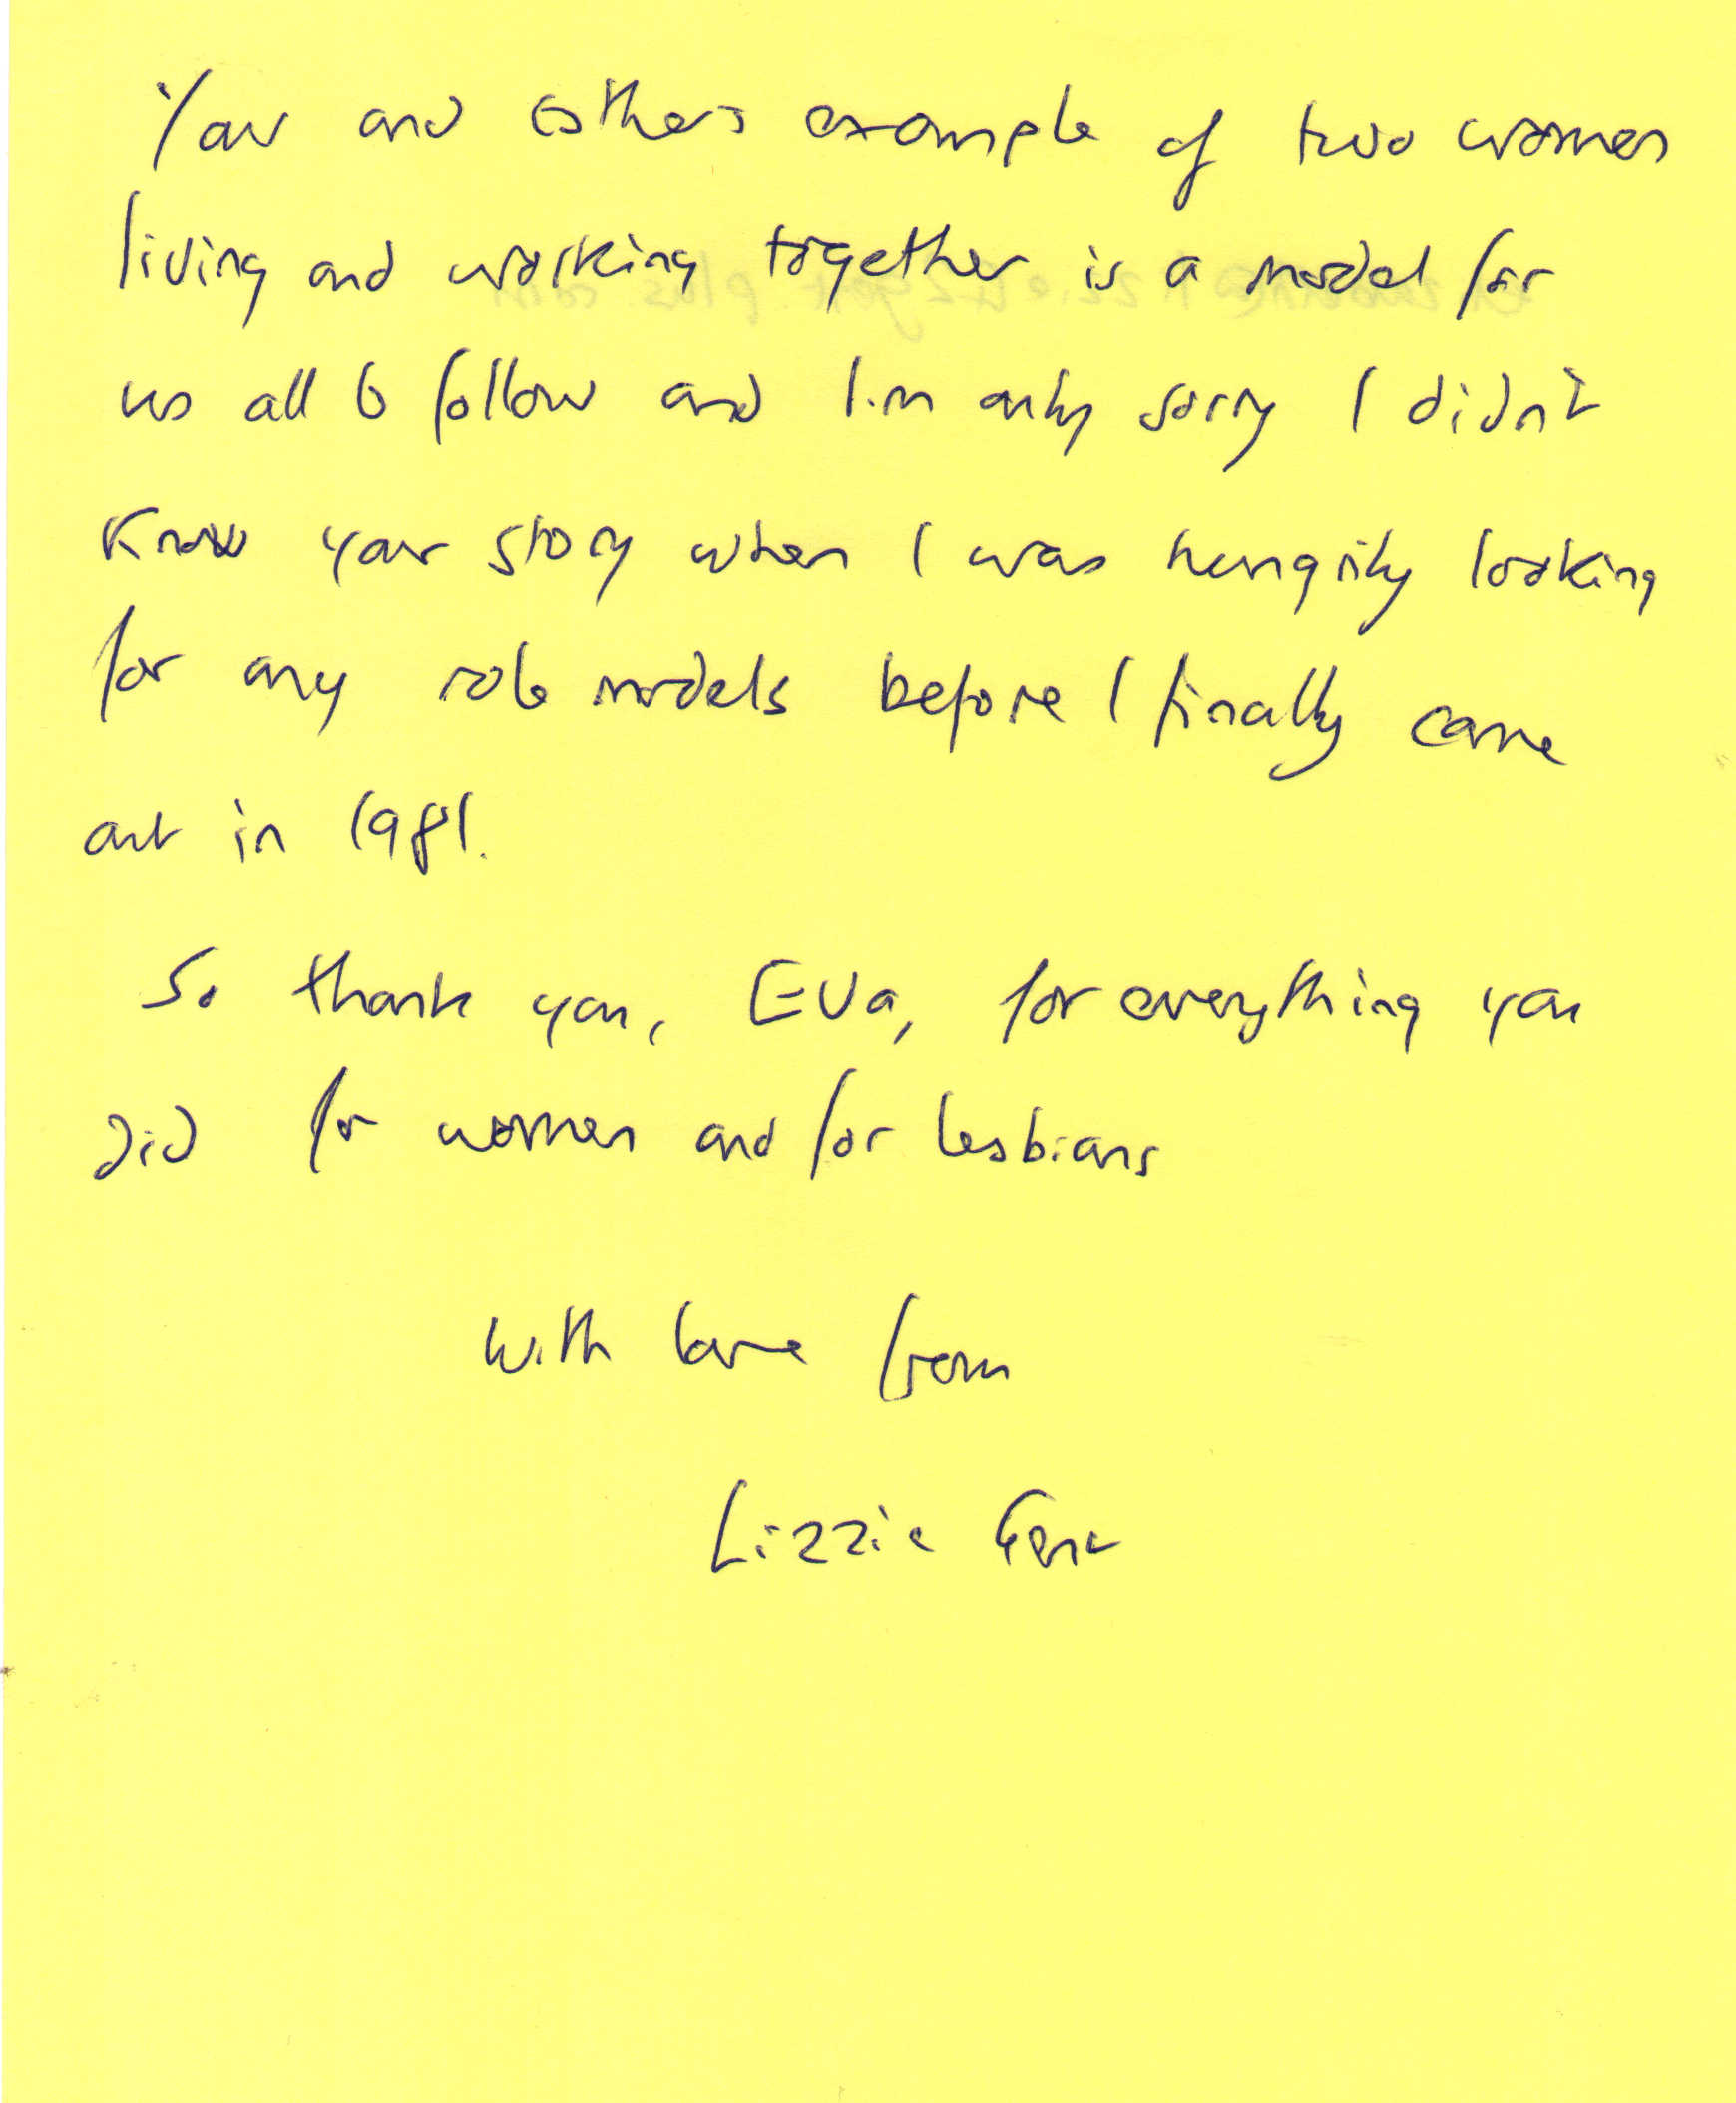 Your and Esther's example of two women
living and working together is a model for
us all to follow and I'm only sorry I didn't
know your story when I was hungrily looking
for any role models before I finally came
out in 1981.
So thank you, Eva, for everything you
did for women and for lesbians
With love from
Lizzie